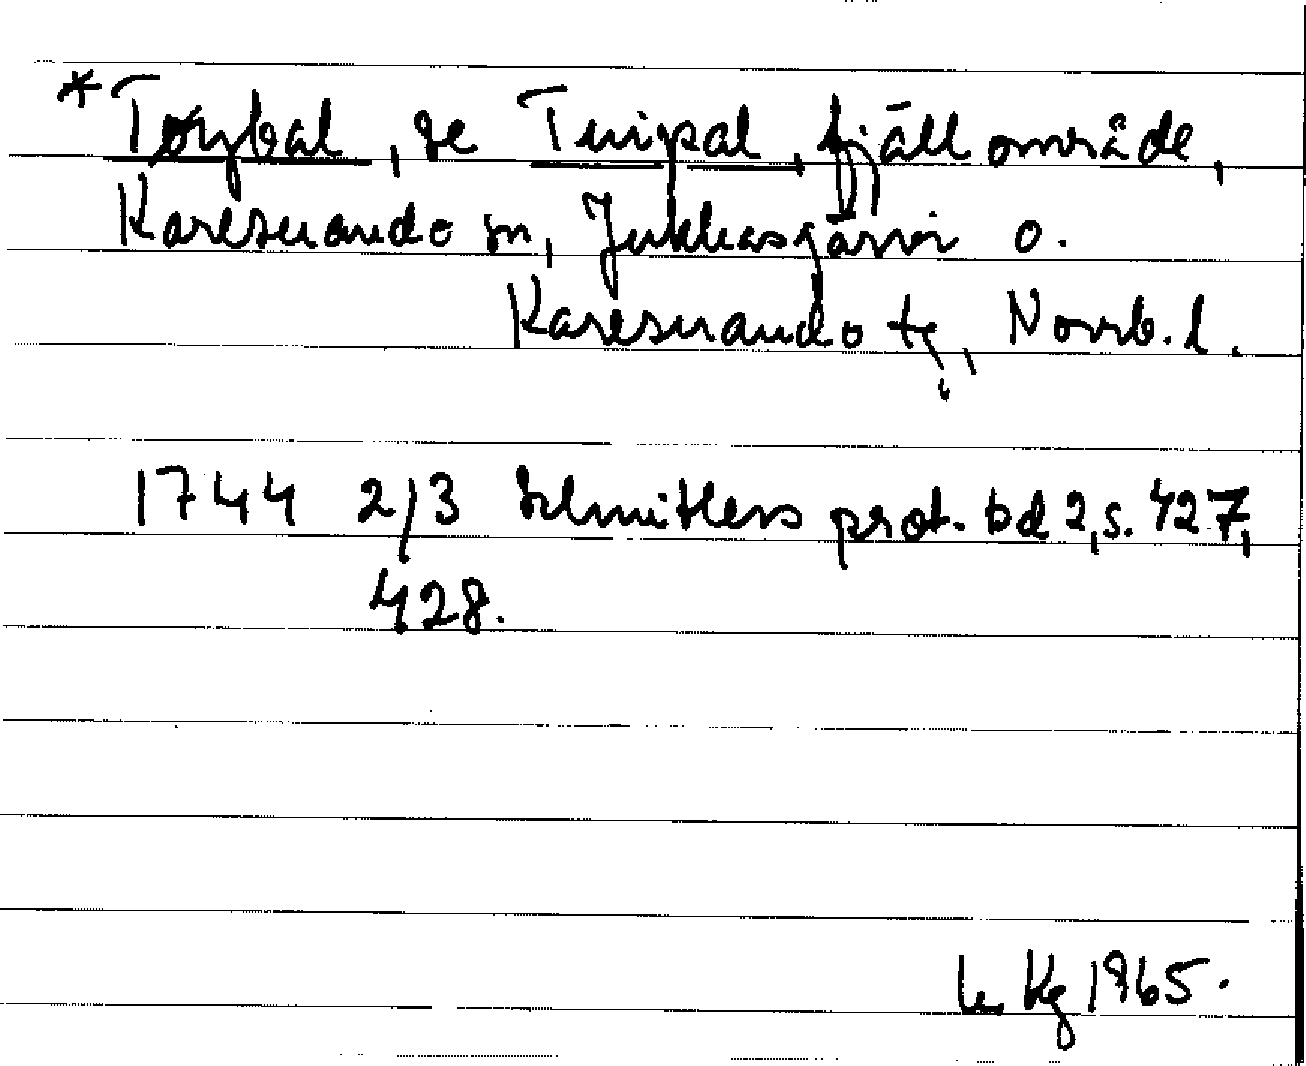 *Tøybal, se Tuipal, fjällområde,
Karesuando sn, Jukkasjärvi o.
Karesuando tg, Norrb. l.
1744 2/3 Schnitlers prot. bd 2, s. 427,
428.
Kg 1965.